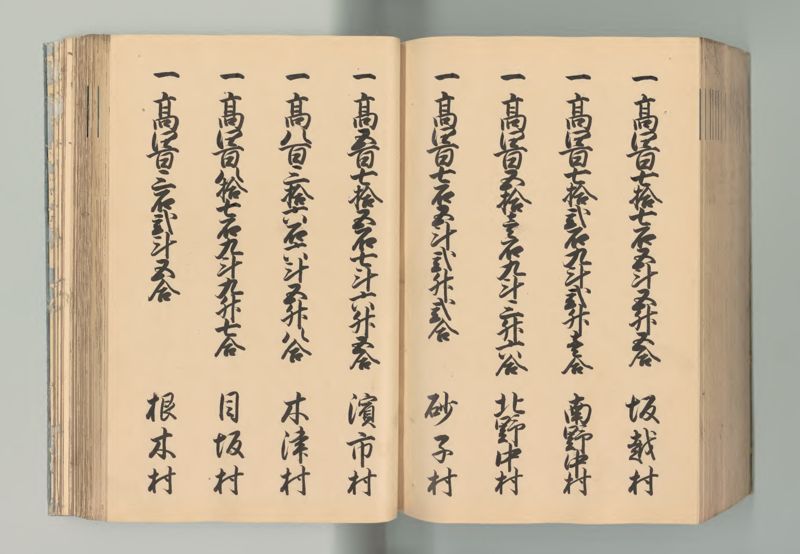 一 髙四百七拾七石五斗五升五合 坂越村
一 髙四百七拾弐石九斗弐升壱合 南野中村
一 髙四百五拾壱石九斗三升六合 北野中村
一 髙四百七石五斗弐升弐合 砂子村
一 髙五百七拾五石七斗六升五合 濱市村
一 髙八百三拾六石六斗五升八合 木津村
一 髙四百八拾七石九斗九升七合 目坂村
一 髙四百三石弐斗五合 根木村